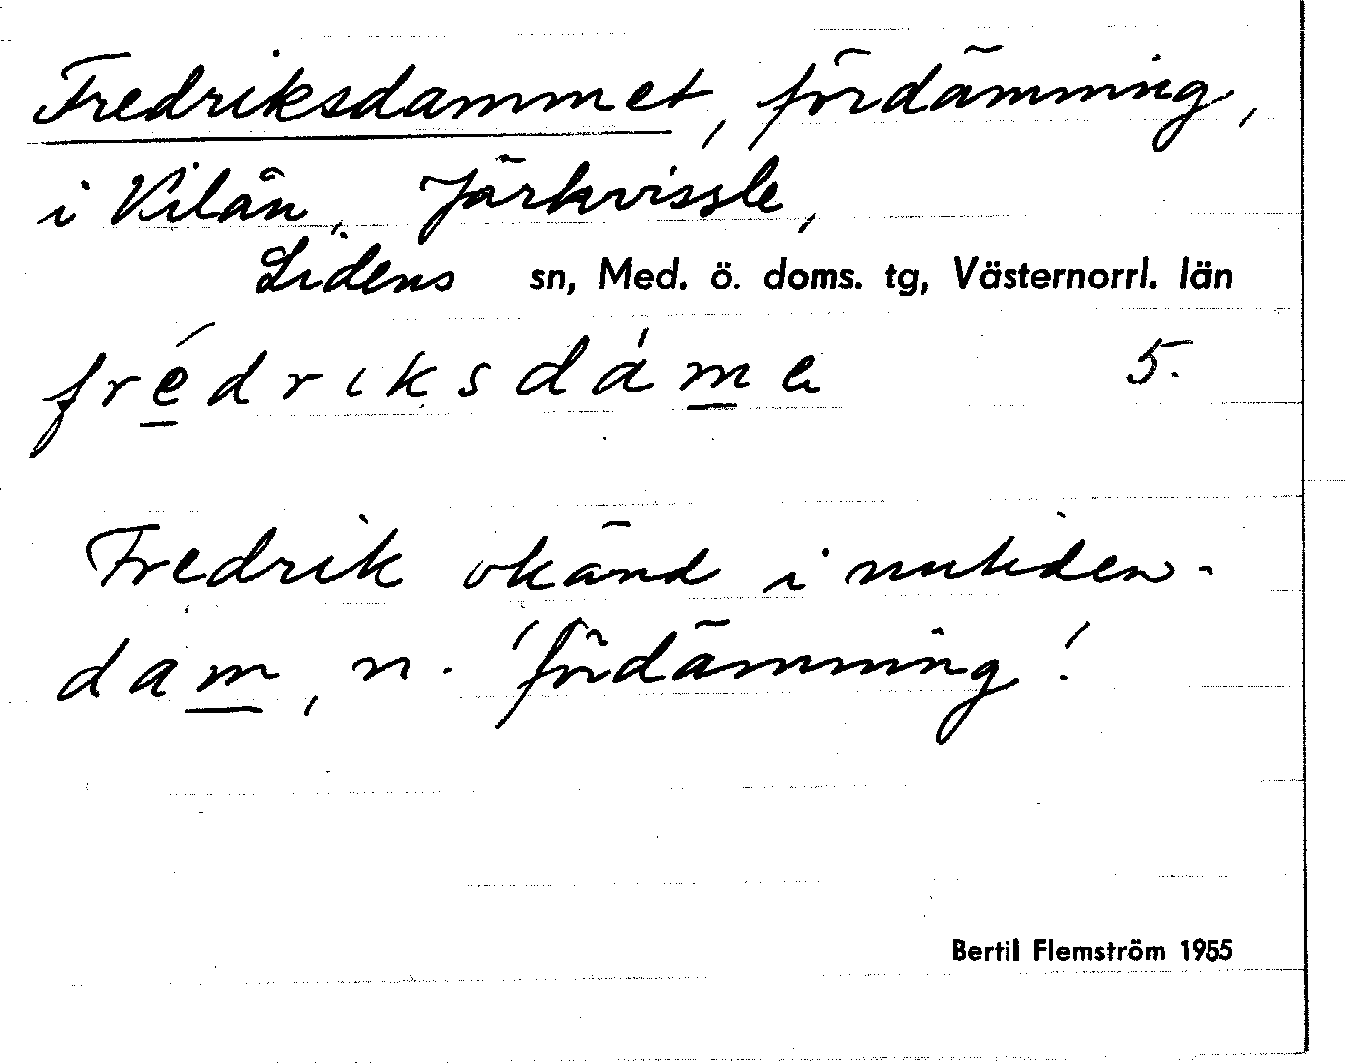 Fredriksdammet, fördämning,
i Vilån, Järkvissle,
Lidens sn, Med. ö. doms. tg, Västernorrl. län
frédriksdáme 5.
Fredrik okänd i nutiden.
dam, n. 'fördämning'.
Bertil Flemström 1955